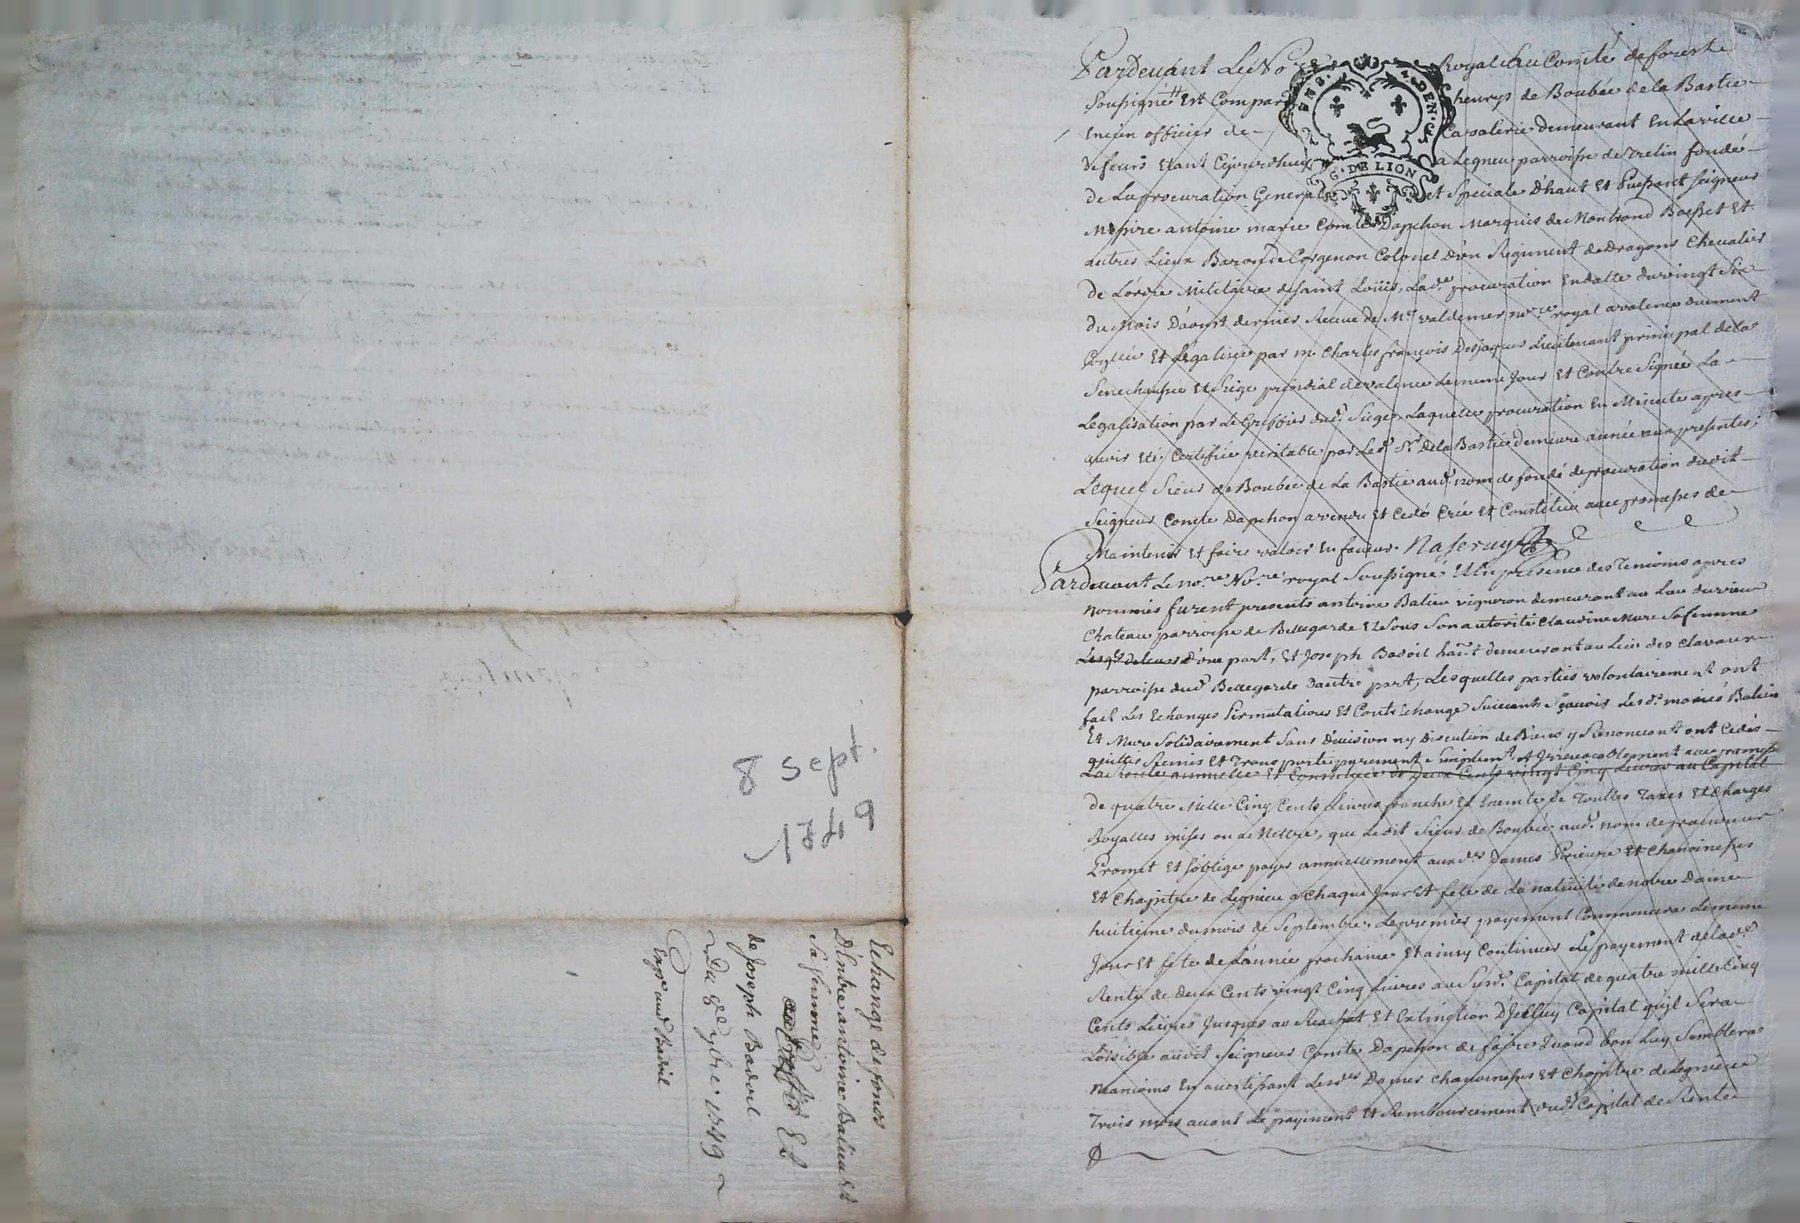 8 sept
1749
Echange de fonds
D'Entre antoine Balieu Et
Sa femme Et
de Joseph Badoil
Du 8e 7bre 1749
Expe aud Badoil
Pardevant Le No Royal Au Comté de forest
Soussigné Est Comparu henrys de Boubée de la Bastie
encien officier de Cavalerie demeurant En La ville
de feurs Etant Cejourdhuy a Legneu parroisse de Trelin fondé
de La procuration Generale et Speciale d'haut Et Puissant Seigneur
Messire antoine marie Comte Dapchon Marquis de Montrond Boesset Et
autres Lieux Baron de Corgenon Colonel d'un Regiment de Dragons Chevalier
de Lordre Militaire de Saint Louis, Lade procuration En datte du vingt Six
du Mois Daoust dernier Receue de Me valdemer nore royal a valence duement
et Legalisée par mr Charles françois Desjaques Lieutenant principal de la
Senechaussée et Siege presidial de valence Le meme Jour Et Contre Signée La
Legalisation par Le Greffier dud. Siege, Laquelle procuration En Minutte apres
avoir Eté Certifiée veritable par Led. Sr De la Bastie demeure annéxée aux presentes,
Lequel Sieur de Boubée de La Bastie aud. nom de fondé de procuration dudit
Seigneur Comte Dapchon a vendu Et Cedé Créé et Constitué avec promesses de
Maintenir Et faire valoir En faveur.
Pardevant Le no.re No.re royal Soussigné Et En presence des Temoins apres
nommés furent presents antoine Balieu vigneron demeurant au Lieu du vieux
Chateau parroisse de Bellegarde Et Sous Son autorité Claudine Mure Sa femme
d'une part, Et Joseph Badoil hant demeurant au Lieu des Clavaux
parroisse dud. Bellegarde Dautre part, Lesquelles parties volontairement ont
fait Les Echanges Permutations Et Contr Echange Suivants Sçavoir Les d. mariés Balieu
Et Mure Solidairement Sans Division ny Discution de Biens y Renoncant ont Cedés
quittes Remis Et Transportes purement Simplemt et Irrevocablement avec promesse
La rente annuelle Et Constituée de Deux Cents vingt Cinq Livres au Capital
de quatre Mille Cinq Cents Livres franche Et Exemte de Touttes Taxes Et Charges
Royalles mises ou a Mettre, que Ledit Sieur de Boubée aud. nom de procureur
Promet Et S'oblige payer annuellement aux d.es Dames Prieure Et Chanoinesses
Et Chapitre de Legnieu a Chaque Jour Et fete de La nativité de notre Dame
huitieme du mois de Septembre, Le premier payement Commencera Le meme
Jour Et fete de L'année prochaine Et ainsy Continuer Le payement de lade
Rente de Deux Cents vingt Cinq Livres au Susd. Capital de quatre mille Cinq
Cents Livres Jusques au Rachat Et Extinction D'Jcelluy Capital qu'jl Sera
Loisible audit Seigneur Comte Dapchon de faire Quand bon Luy Semblera
neamoins En avertissant Lesd.es Dames Chanoinesses Et Chapitre de Legnieu
Trois mois avant Le payement Et Remboursement dud. Capital de Rente